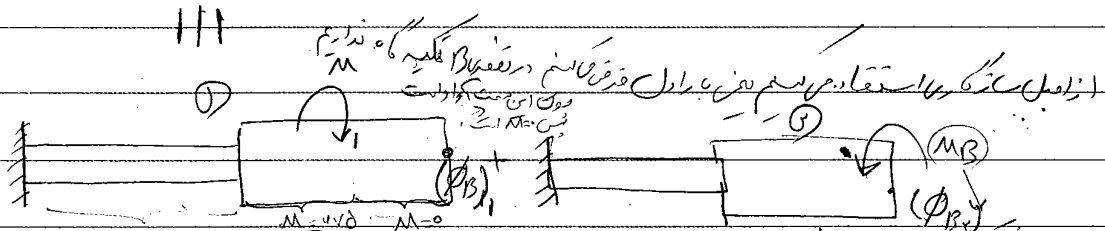 111
از اصل سازگاری استفاده می کنیم یعنی بار اول فرض می کنیم در نقطه B تکیه گاه نداریم
M
چون این سمت آزاد است
پس M=0 است.
① ②
M_B
(φ_B)₁ (φ_B)₂
M=0